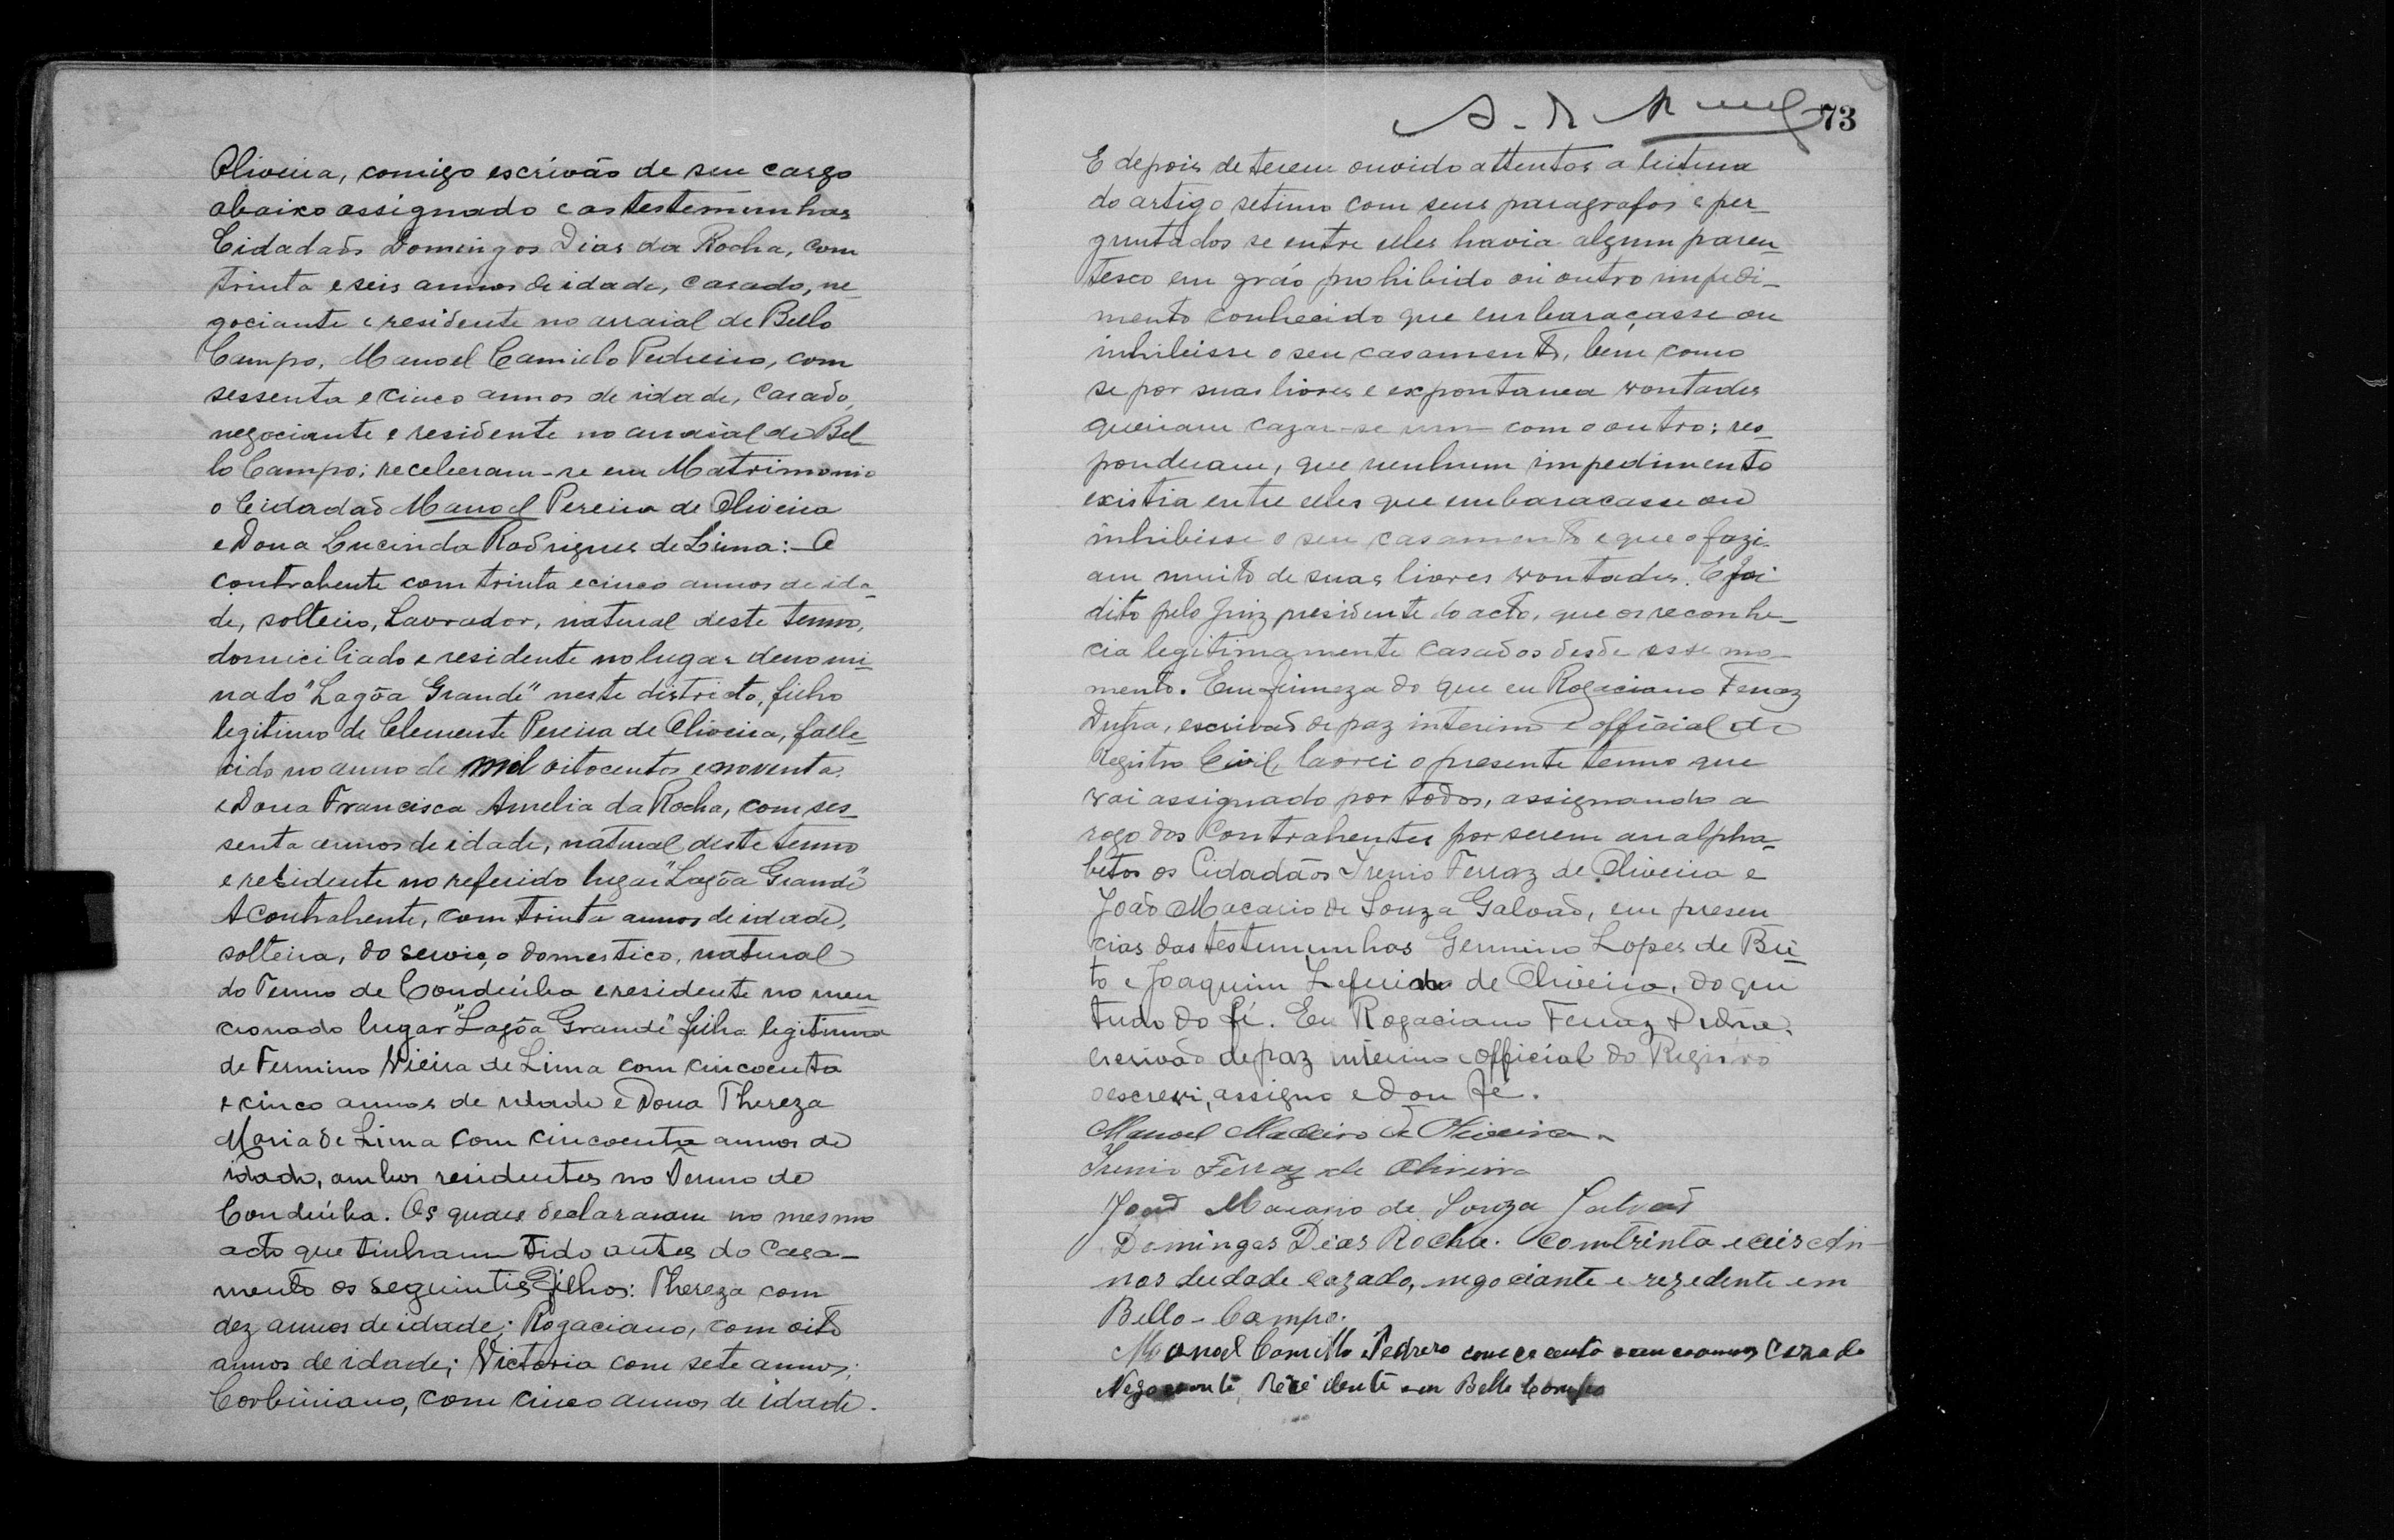 Oliveira, comigo escrivão de seu cargo
abaixo assignado e as testemunhas
Cidadaõs Domingos Dias da Rocha, com
trinta e seis annos de idade, casado, ne-
gociante e residente no arraial de Bello
Campo, Manoel Camielo Pedreira, com
sessenta e cinco annos de idade, casado,
negociante e residente no arraial de Bel
lo Campo; receberam-se em Matrimonio
o Cidadaõ Manoel Pereira de Oliveira
e Dona Lucinda Rodrigues de Lima:- O
contrahente com trinta e cinco annos de ida-
de, solteiro, Lavrador, natural deste termo,
domiciliado e residente no lugar denomi-
nado "Lagôa Grande" neste districto, filho
legitimo de Clemente Pereira de Oliveira, falle-
cido no anno de mil oitocentos e noventa,
e Dona Francisca Amelia da Rocha, com ses-
senta annos de idade, natural deste termo
e residente no referido lugar "Lagôa Grande"
A Contrahente, com trinta annos de idade,
solteira, do serviço domestico, natural
do Termo de Condeúba e residente no men
cionado lugar "Lagôa Grande" filha legitima
de Fermino Vieira de Lima com cincoenta
e cinco annos de idade e Dona Thereza
Maria de Lima com cincoenta annos de
idade, ambos residentes no Termo de
Condeúba. Os quaes declararam no mesmo
acto que tinham tido antes do casa-
mento os seguintes filhos: Thereza com
dez annos de idade; Rogaciano, com oito
annos de idade; Victoria com sete annos;
Corbiniano, com cinco annos de idade.
73
E depois de terem ouvido attentos a leitura
do artigo setimo com seus paragrafos e per-
guntados se entre elles havia algum paren-
tesco em gráo prohibido ou outro impedi-
mento conhecido que embaraçasse ou
inhibisse o seu casamento, bem como
se por suas livres e expontanea vontades
queriam cazar-se um com o outro; res-
ponderam, que nenhum impedimento
existia entre elles que embaracasse ou
inhibisse o seu casamento e que o fazi-
am muito de suas livres vontades. E foi
dito pelo Juiz presidente do acto, que os reconhe-
cia legitimamente casados desde esse mo-
mento. Em firmeza do que eu Rogaciano Ferraz
Dutra, escrivaõ de paz interino e official do
Registro Civil, lavrei o presente termo que
vai assignado por todos, assignando a
rogo dos Contrahentes por serem analpha-
betos os Cidadãos Irenio Ferraz de Oliveira e
João Macario de Souza Galvaõ, em presen
cias das testemunhas Germino Lopes de Bri-
to e Joaquim Zeferino de Oliveira, do que
tudo dou fé. Eu Rogaciano Ferraz Dutra,
escrivaõ de paz interino e official do Registro
o escrevi, assigno e dou fé.
Manoel Madeiro de Oliveira
Irenio Ferraz de Oliveira
Joaõ Macario de Souza Galvaõ
Domingas Dias Rocha. com trinta e ceis An-
nos deidade cazado, negociante e rezedente em
Bello-Campo.
Manoel Camillo Pedrero com cecenta e cinco annos Cazado
Negociante, Rezidente em Bello Campo